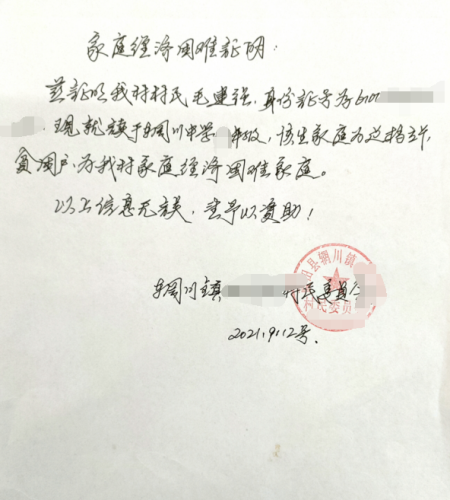 家庭经济困难证明：
兹证明我村村民毛建强，身份证号为610
现就读于辋川中学 年级，该生家庭为建档立卡
贫困户，为我村家庭经济困难家庭。
以上信息无误，望予以资助！
辋川镇 村民委员会
田县辋川镇
村民委员
2021.9.12号.